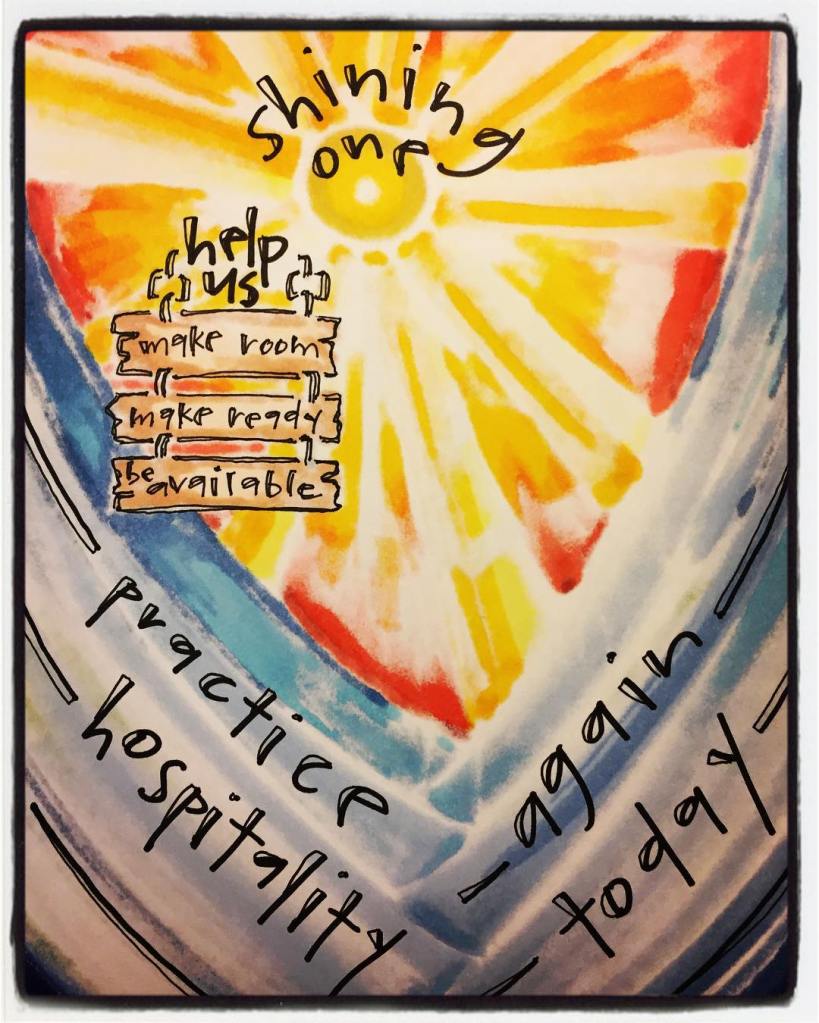 shining
one
help
us
make room
make ready
be available
practice
hospitality
again
today